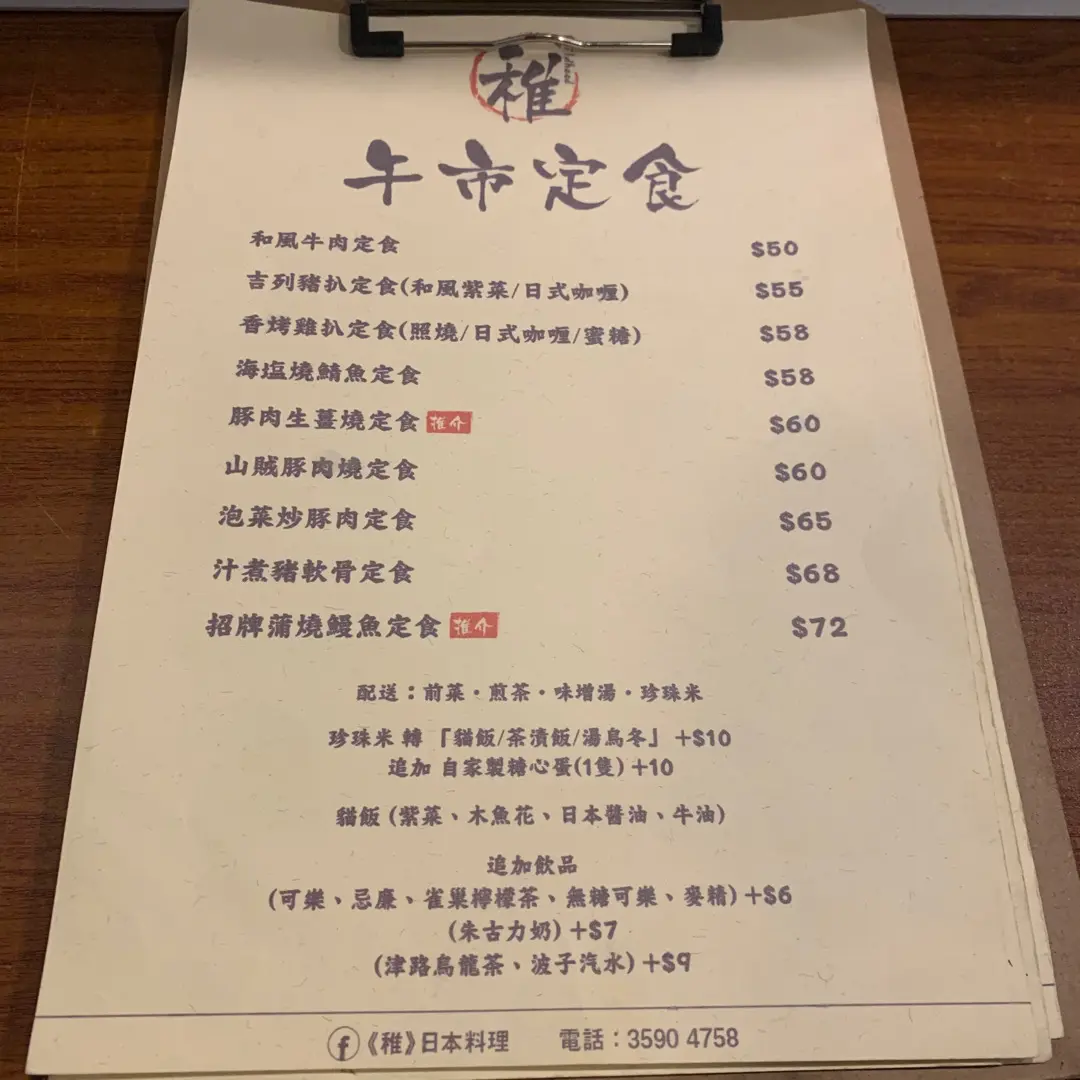 稚
午市定食
和風牛肉定食 $50
吉列豬扒定食(和風紫菜/日式咖喱) $55
香烤雞扒定食(照燒/日式咖喱/蜜糖) $58
海塩燒鯖魚定食 $58
豚肉生薑燒定食 推介 $60
山賊豚肉燒定食 $60
泡菜炒豚肉定食 $65
汁煮豬軟骨定食 $68
招牌蒲燒鰻魚定食 推介 $72
配送：前菜・煎茶・味增湯・珍珠米
珍珠米 轉 「貓飯/茶漬飯/湯烏冬」 +$10
追加 自家製糖心蛋(1隻) +10
貓飯 (紫菜、木魚花、日本醬油、牛油)
追加飲品
(可樂、忌廉、雀巢檸檬茶、無糖可樂、麥精) +$6
(朱古力奶) +$7
(津路烏龍茶、波子汽水) +$9
f《稚》日本料理 電話：3590 4758